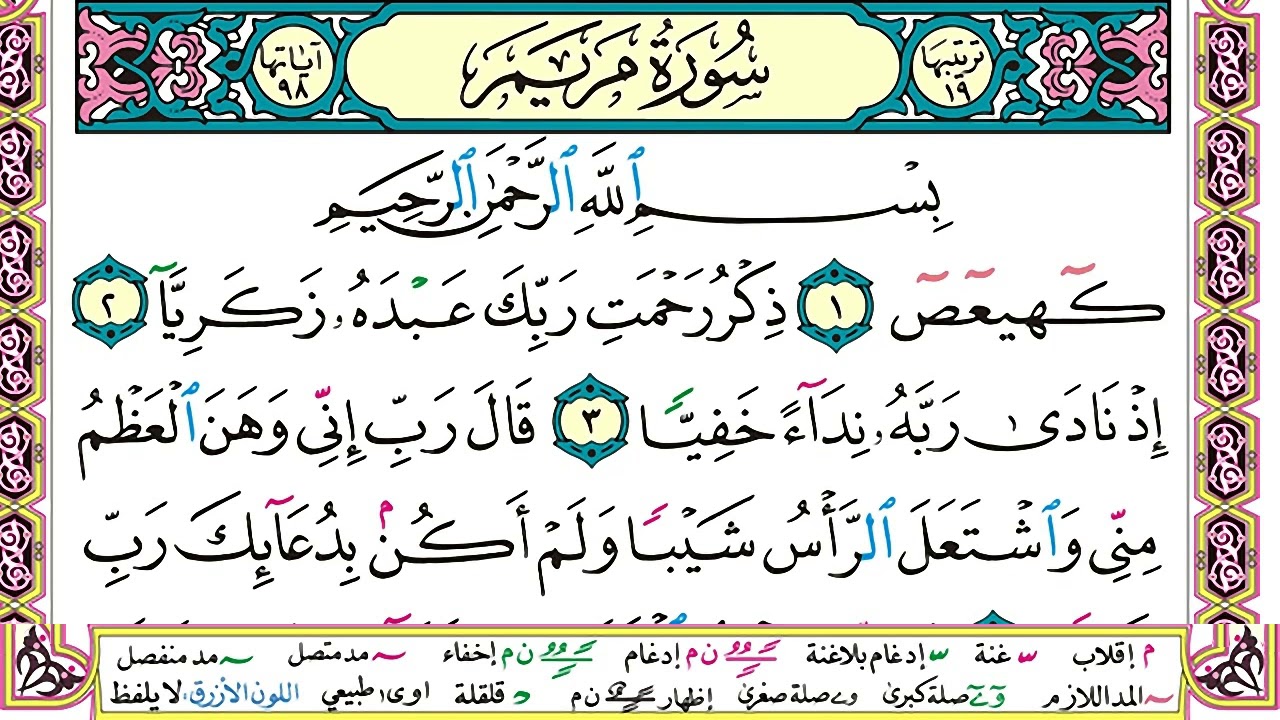 ترتيبها ١٩
سُورَةُ مَرْيَمَ
آياتها ٩٨
بِسْمِ ٱللَّهِ ٱلرَّحْمَٰنِ ٱلرَّحِيمِ
كٓهيعٓصٓ ١ ذِكْرُ رَحْمَتِ رَبِّكَ عَبْدَهُۥ زَكَرِيَّآ ٢
إِذْ نَادَىٰ رَبَّهُۥ نِدَآءً خَفِيًّا ٣ قَالَ رَبِّ إِنِّى وَهَنَ ٱلْعَظْمُ
مِنِّى وَٱشْتَعَلَ ٱلرَّأْسُ شَيْبًا وَلَمْ أَكُنۢ بِدُعَآئِكَ رَبِّ
م إقلاب ّ غنة ّ إدغام بلاغنة ن م إدغام ن م إخفاء ~ مد متصل ~ مد منفصل
~ المد اللازم و ے صلة كبرى و ے صلة صغرى إظهار ن م د قلقلة ا و ى طبيعي اللون الأزرق: لا يلفظ